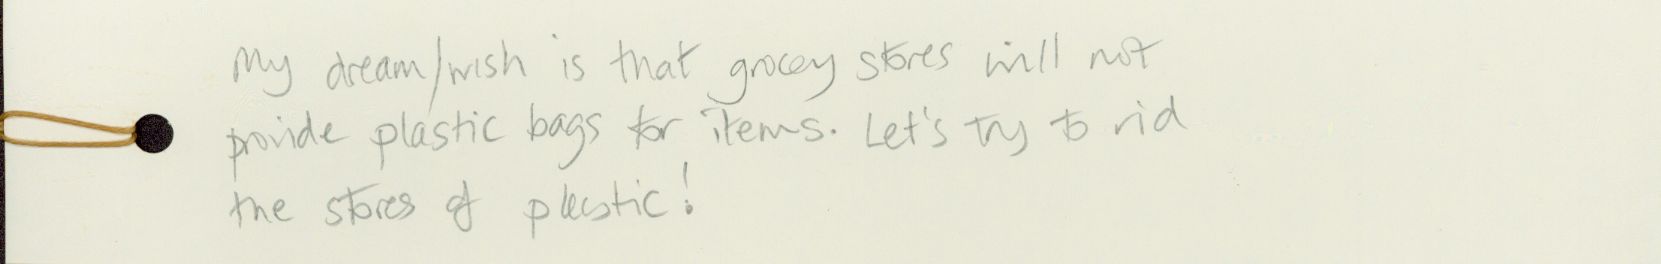 My dream/wish is that grocey stores will not
provide plastic bags for items. Let's try to rid
the stores of plastic!